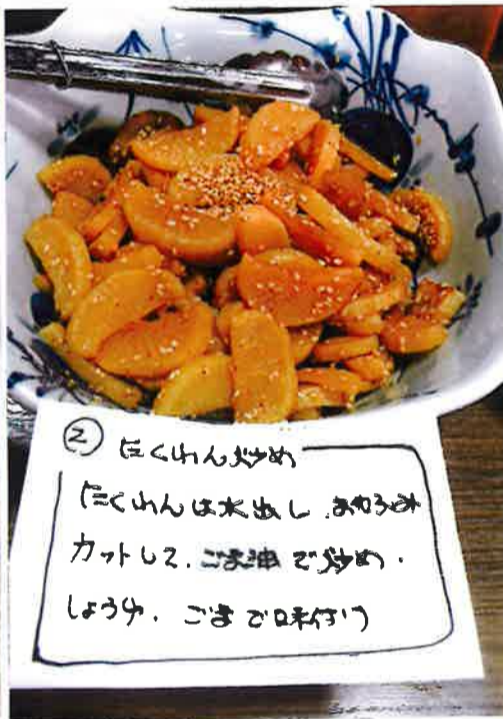 ② たくわん炒め
たくわんは水出し、お好み
カットして、ごま油で炒め、
しょうゆ、ごまで味付け